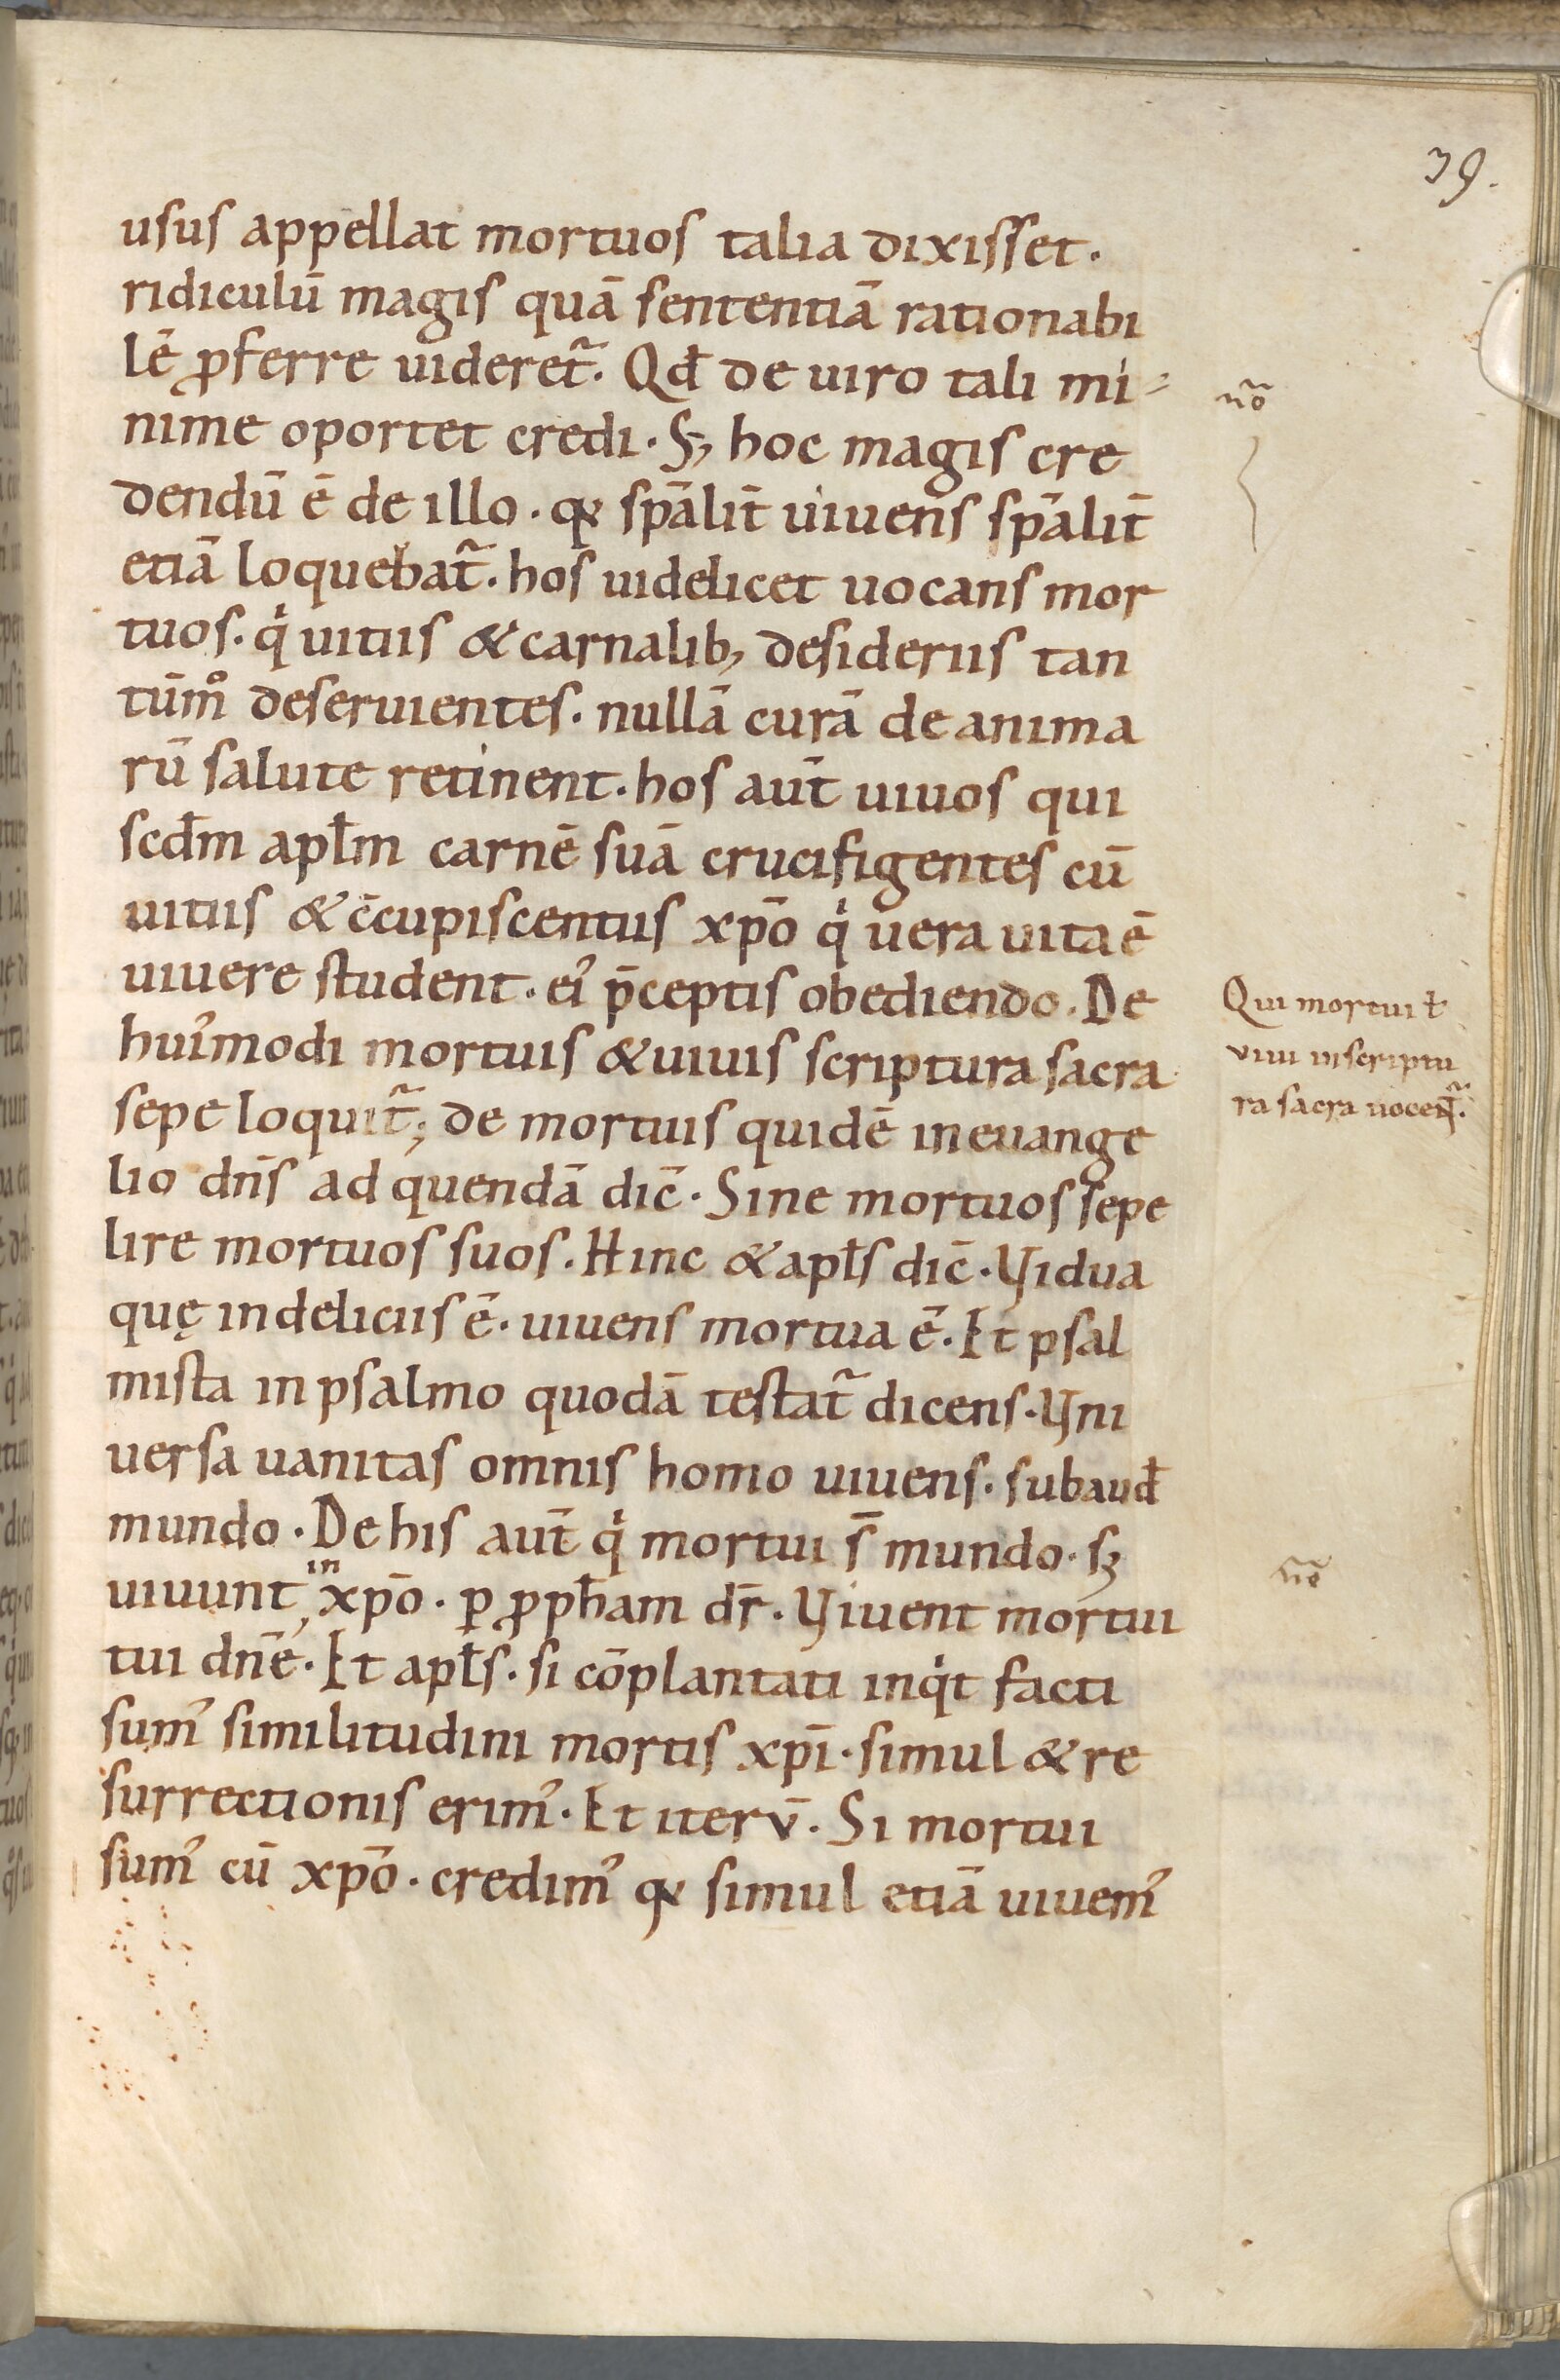 39.
usus appellat mortuos talia dixisset.
ridiculū magis quā sententiā rationabi
lē ꝓferre uideret᷒. Qđ de uiro tali mi-
nō
nime oportet credi. S; hoc magis cre
dendū ē de illo. qꝫ sp̄alit̄ uiuens sp̄alit̄
etiā loquebat᷒. hos uidelicet uocans mor
tuos. qͥ uitiis & carnalib; desideriis tan
tūmͦ deseruientes. nullā curā de anima
rū salute retinent. hos aut̄ uiuos qui
scđm apłm carnē suā crucifigentes cū
uitiis & c̄cupiscentiis xp̄o qͥ uera uita ē
uiuere student. ei᾿ p̄ceptis obediendo. De
hui᾿modi mortuis & uiuis scriptura sacra
sepe loquit᷒; de mortuis quidē in euange
Qui mortui ł
viui in scriptu
ra sacra uocent᷒.
lio dn̄s ad quendā dic̄. Sine mortuos sepe
lire mortuos suos. Hinc & apłs dic̄. Vidua
quę in deliciis ē. uiuens mortua ē. Et psal
mista in psalmo quodā testat᷒ dicens. Vni
uersa uanitas omnis homo uiuens. subauđ
mundo. De his aut̄ qͥ mortui s̄ mundo. sꝫ
uiuunt in xp̄o. ꝑ ꝓph̄am dr̄. Viuent mortui
nō
tui dn̄e. Et apłs. si cōplantati inqͥt facti
sum᾿ similitudini mortis xp̄i. simul & re
surrectionis erim᾿. Et iterv̄. Si mortui
sum᾿ cū xp̄o. credim᾿ qꝫ simul etiā uiuem᾿